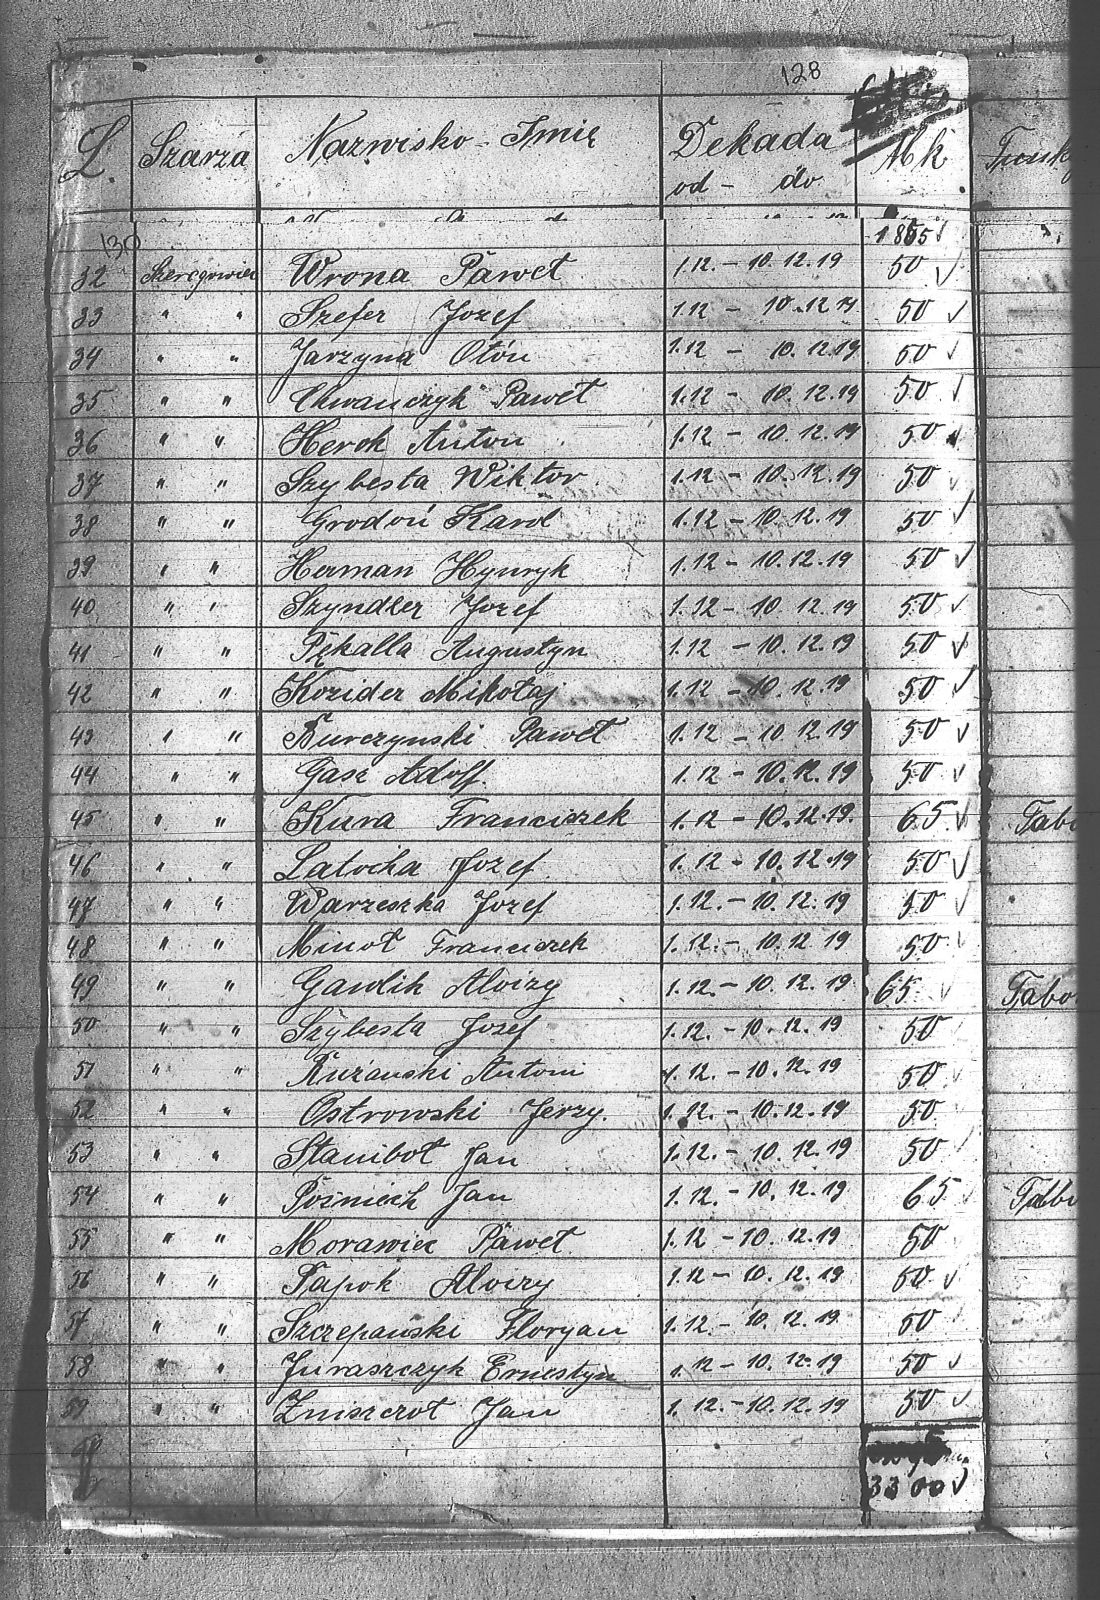 128
L. Szarża Nazwisko-Imię Dekada Mk
od - do
130 1855 ✓
32 Szeregowiec Wrona Paweł 1.12. - 10.12.19 50 ✓
33 " " Szefer Jozef 1.12 - 10.12.19 50 ✓
34 " " Jarzyna Otón 1.12 - 10.12.19 50 ✓
35 " " Chwańczyk Paweł 1.12 - 10.12.19 50 ✓
36 " " Herok Anton 1.12 - 10.12.19 50 ✓
37 " " Szybesta Wiktor 1.12 - 10.12.19 50 ✓
38 " " Grodoń Karol 1.12 - 10.12.19 50 ✓
39 " " Herman Hynryk 1.12 - 10.12.19 50 ✓
40 " " Szyndler Jozef 1.12 - 10.12.19 50 ✓
41 " " Pękalla Augustyn 1.12 - 10.12.19 50 ✓
42 " " Kozider Mikołaj 1.12 - 10.12.19 50 ✓
43 " " Burczynski Paweł 1.12 - 10.12.19 50 ✓
44 " " Gasz Adolf 1.12 - 10.12.19 50 ✓
45 " " Kura Franciszek 1.12 - 10.12.19 65 ✓
46 " " Latocha Jozef 1.12 - 10.12.19 50 ✓
47 " " Warzeszka Jozef 1.12. - 10.12.19 50 ✓
48 " " Minoł Franciszek 1.12. - 10.12.19 50 ✓
49 " " Gawlik Aloizy 1.12. - 10.12.19 65 ✓
50 " " Szybesta Jozef 1.12. - 10.12.19 50 ✓
51 " " Antoni 1.12. - 10.12.19 50 ✓
52 " " Ostrowski Jerzy. 1.12. - 10.12.19 50
53 " " Staniboł Jan 1.12. - 10.12.19 50 ✓
54 " " Jan 1.12. - 10.12.19 65 ✓
55 " " Morawiec Paweł 1.12 - 10.12.19 50
56 " " Papok Aloizy 1.12 - 10.12.19 50 ✓
57 " " Szczepanski Floryan 1.12. - 10.12.19 50
58 " " Juraszczyk Ernestyn 1.12 - 10.12.19 50 ✓
59 " " Zniszczoł Jan 1.12. - 10.12.19 50 ✓
3300 ✓